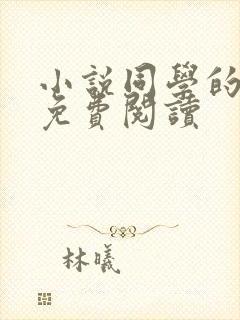 小説同學的
免費閱讀
林曦